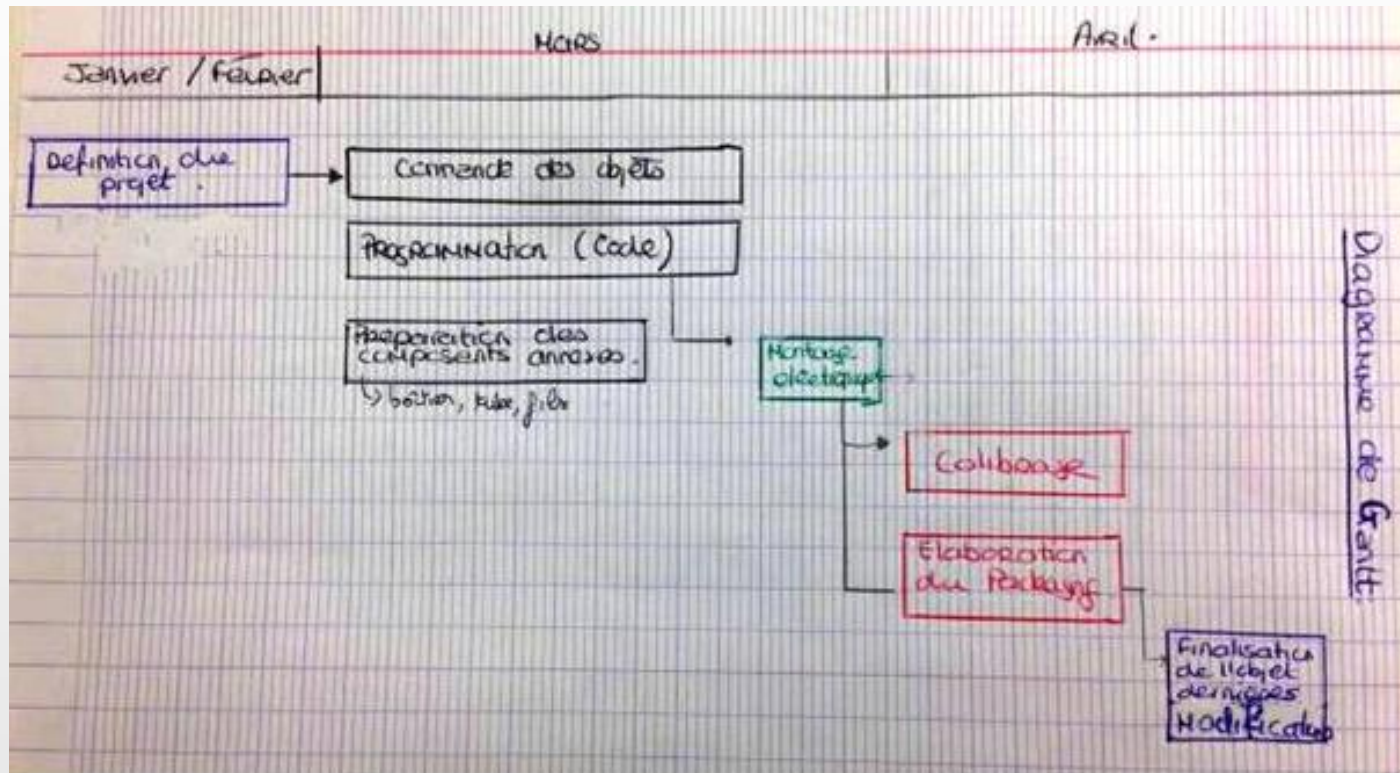 Mars
Avril.
Janvier / Février
Définition du
projet.
Commande des objets
Programmation (Code)
Préparation des
composents annexes.
↳ boitier, tube, fils
Montage
électrique
Calibrage
Elaboration
du Packaging
Finalisation
de l'objet
dernières
Modifications
Diagramme de Gantt.